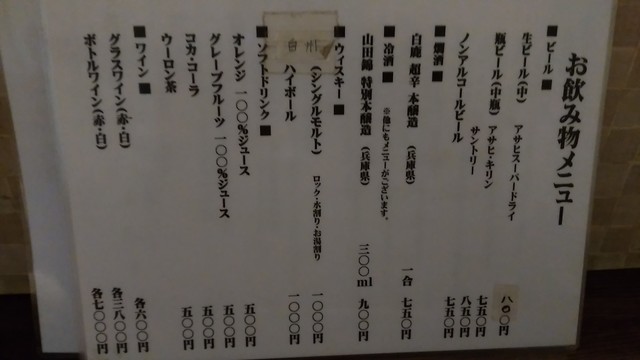 お飲み物メニュー
■ビール■
生ビール(中) アサヒスーパードライ 八〇〇円
瓶ビール(中瓶) アサヒ・キリン 七五〇円
サントリー 八五〇円
ノンアルコールビール 七五〇円
■燗酒■
白鹿 超辛 本醸造 (兵庫県) 一合 七五〇円
■冷酒■ ※他にもメニューがございます。
山田錦 特別本醸造 (兵庫県) 三〇〇ml 九〇〇円
■ウィスキー■
白州 (シングルモルト) ロック・水割り・お湯割り 一〇〇〇円
ハイボール 一〇〇〇円
■ソフトドリンク■
オレンジ 一〇〇%ジュース 五〇〇円
グレープフルーツ 一〇〇%ジュース 五〇〇円
コカ・コーラ 五〇〇円
ウーロン茶 五〇〇円
■ワイン■
グラスワイン(赤・白) 各六〇〇円
ボトルワイン(赤・白) 各三八〇〇円
各七〇〇〇円